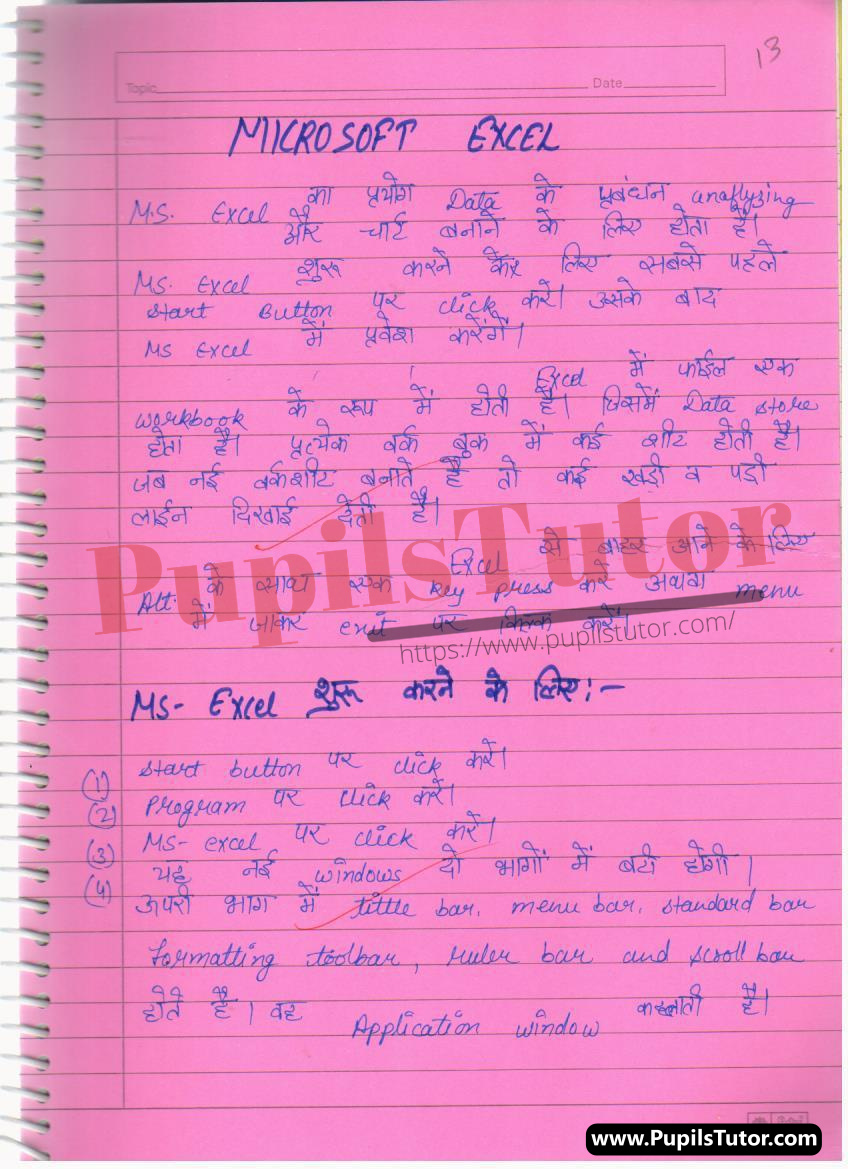 13
Topic Date
MICROSOFT EXCEL
M.S. Excel का प्रयोग Data के प्रबंधन analyzing
और चार्ट बनाने के लिए होता है।
MS. Excel शुरू करने के लिए सबसे पहले
start Button पर click करें। उसके बाद
MS Excel में प्रवेश करेंगें।
Excel में फाईल एक
workbook के रूप में होती है। जिसमें Data store
होता है। प्रत्येक वर्क बुक में कई शीट होती है।
जब नई वर्कशीट बनाते है तो कई खड़ी व पड़ी
लाईन दिखाई देती है।
Excel से बाहर आने के लिए
Alt. के साथ एक key press करें अथवा menu
में जाकर exit पर क्लिक करें।
PupilsTutor
https://www.pupilstutor.com/
MS- Excel शुरू करने के लिए:-
(1) start button पर click करें।
(2) program पर click करें।
(3) MS- excel पर click करें।
(4) यह नई windows दो भागों में बटी होगी।
ऊपरी भाग में tittle bar, menu bar, standard bar
formatting toolbar, ruler bar and scroll bar
होते है। वह Application window कहलाती है।
www.PupilsTutor.com